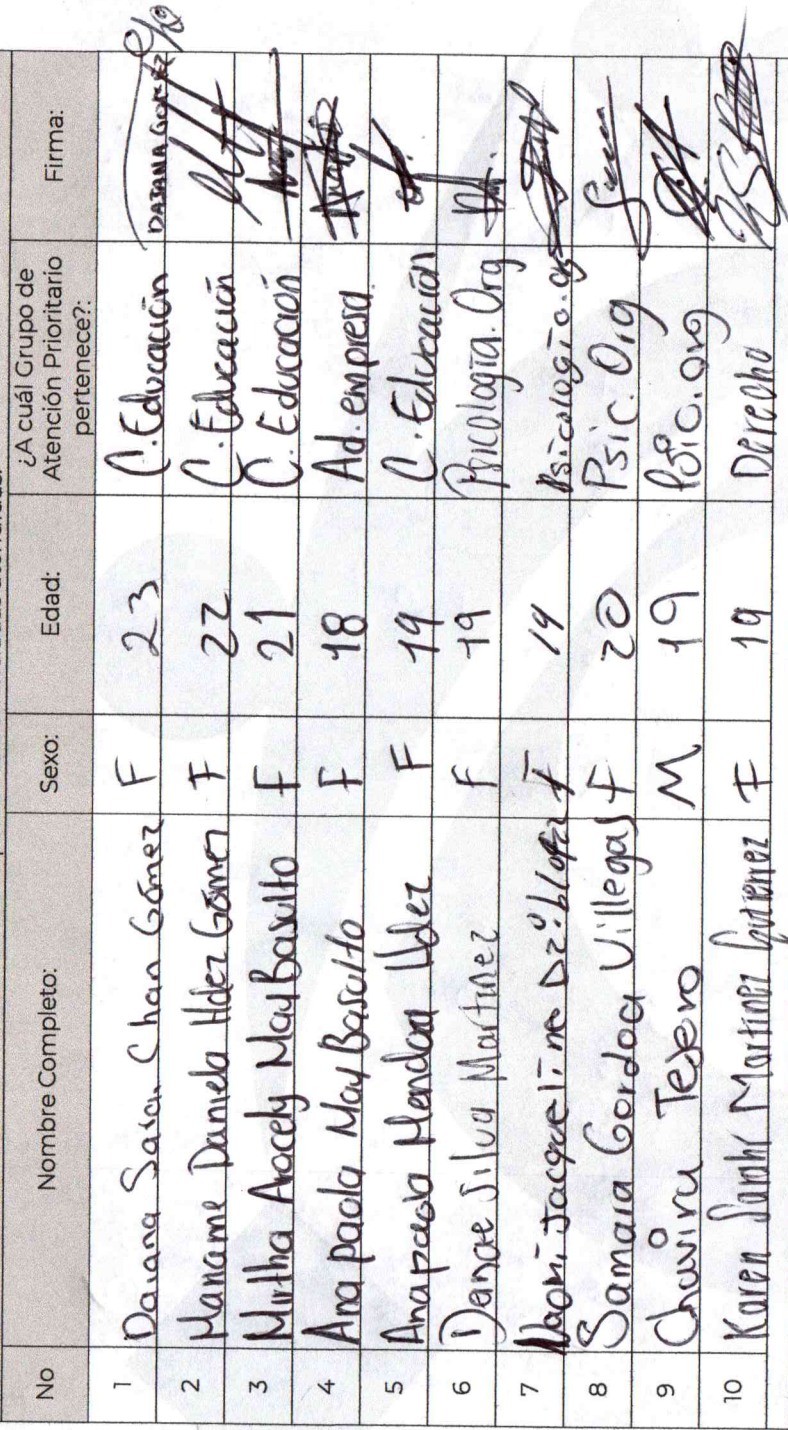 No Nombre Completo: Sexo: Edad: ¿A cuál Grupo de Atención Prioritario pertenece?: Firma:
1 Daiana Sarai Chan Gómez F 23 C. Educación DAIANA GOMEZ
2 Mariame Daniela Hdez Gómez F 22 C. Educación
3 Mirtha Aracely May Basulto F 21 C. Educación
4 Ana paola May Basulto F 18 Ad. empresa.
5 Ana paola Mendoza Hdez F 19 C. Educación
6 Danae Silva Martinez F 19 Psicología. Org
7 Naomi Jacqueline F 19 Psicología.
8 Samara Gordoa Villegas F 20 Psic. Org
9 Tejero M 19 Psic. org
10 Karen Martinez Gutierrez F 19 Derecho